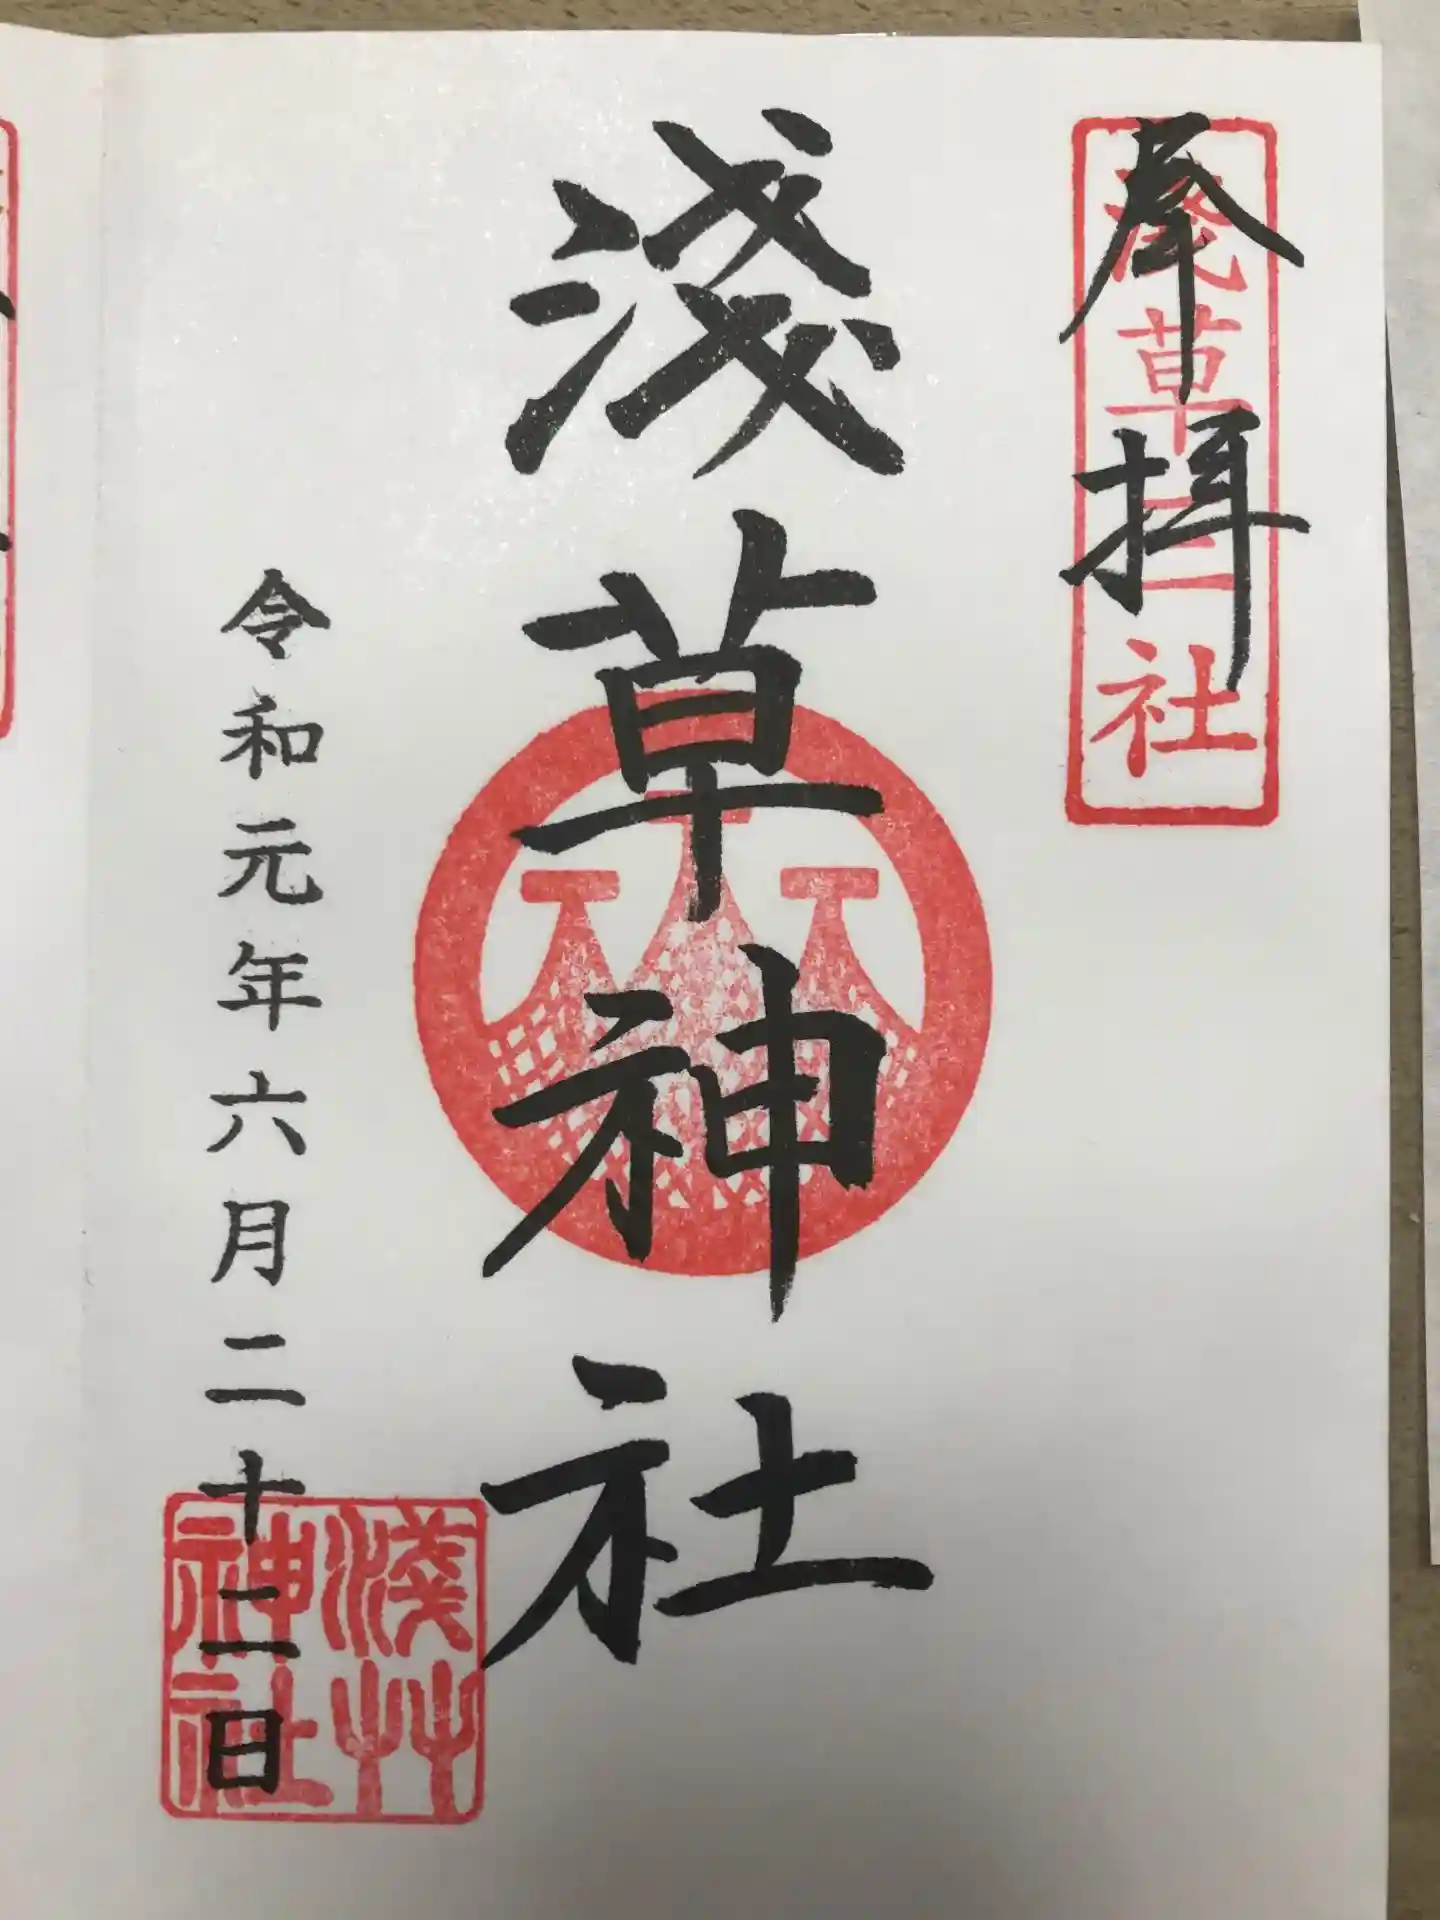 奉拝
淺草三社
淺草神社
令和元年六月二十二日
淺艸神社